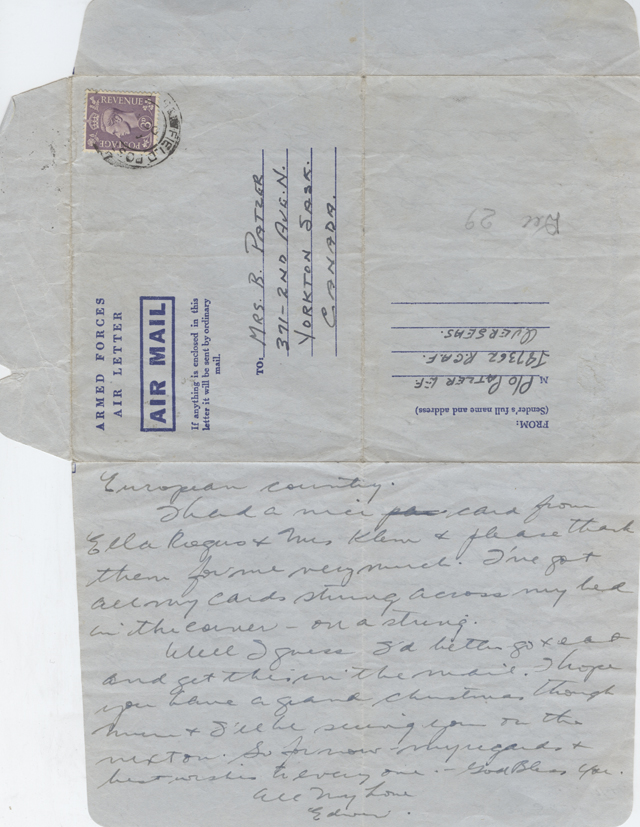 REVENUE
POSTAGE
FIELD POST
ARMED FORCES
AIR LETTER
AIR MAIL
If anything is enclosed in this
letter it will be sent by ordinary
mail.
TO: MRS. R. PATZER
371-2ND AVE. N.
YORKTON SASK.
CANADA.
Dec 29
FROM:
(Sender's full name and address)
P/O PATZER E.F.
J91362 R.C.A.F.
OVERSEAS.
European country.
I had a nice card from
Ella Rogus & Mrs Klem & please thank
them for me very much. I've got
all my cards strung across my bed
in the corner - on a string.
Well I guess I'd better go & eat
and get this in the mail. I hope
you have a grand christmas though
Mum & I'll be seeing you on the
next on. So for now - my regards &
best wishes to every one. - God Bless You.
All My Love
Edwin.